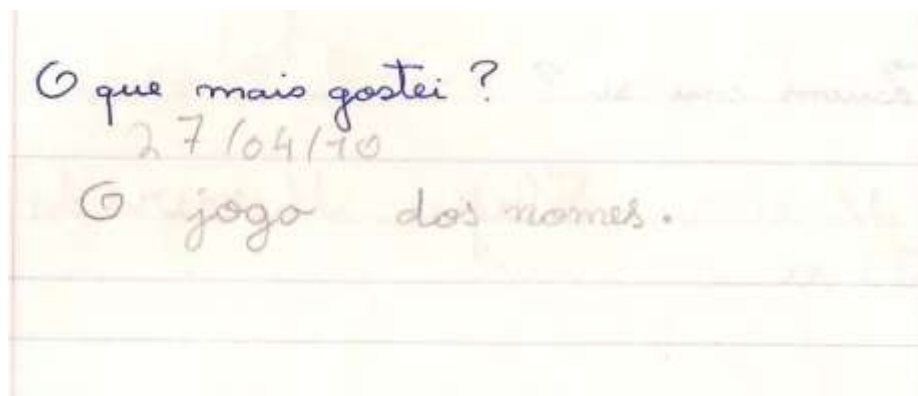 O que mais gostei?
27/04/10
O jogo dos nomes.